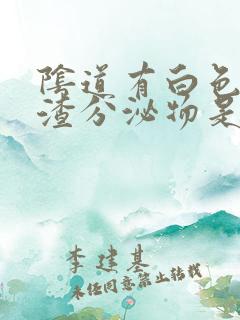 陰道有白色
渣分泌物是
李建基
未经同意禁止转载